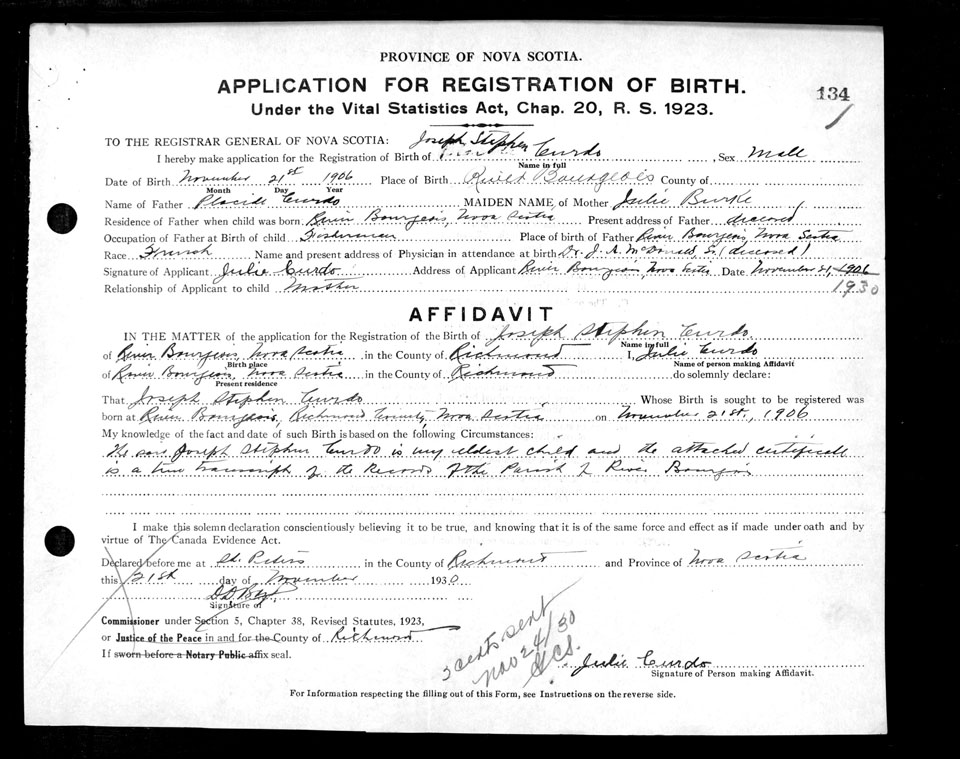 PROVINCE OF NOVA SCOTIA.
APPLICATION FOR REGISTRATION OF BIRTH.
134
Under the Vital Statistics Act, Chap. 20, R. S. 1923.
TO THE REGISTRAR GENERAL OF NOVA SCOTIA:
I hereby make application for the Registration of Birth of Joseph Stephen Curdo, Sex Male
Name in full
Date of Birth November 21st 1906 Place of Birth River Bourgeois County of
Month Day Year
Name of Father Placide Curdo MAIDEN NAME of Mother Julie Burke
Residence of Father when child was born River Bourgeois, Nova Scotia Present address of Father
Occupation of Father at Birth of child Place of birth of Father River Bourgeois, Nova Scotia
Race French Name and present address of Physician in attendance at birth Dr. J. A. McDonald,
Signature of Applicant Julie Curdo Address of Applicant River Bourgeois, Nova Scotia Date November 21, 1906
Relationship of Applicant to child Mother 1930
AFFIDAVIT
IN THE MATTER of the application for the Registration of the Birth of Joseph Stephen Curdo
Name in full
of River Bourgeois, Nova Scotia in the County of Richmond I, Julie Curdo
Birth place Name of person making Affidavit
of River Bourgeois, Nova Scotia in the County of Richmond do solemnly declare:
Present residence
That Joseph Stephen Curdo Whose Birth is sought to be registered was
born at River Bourgeois, Richmond County, Nova Scotia on November 21st, 1906
My knowledge of the fact and date of such Birth is based on the following Circumstances:
The son Joseph Stephen Curdo is my eldest child and the attached certificate
is a true transcript of the Records of the Parish of River Bourgeois
I make this solemn declaration conscientiously believing it to be true, and knowing that it is of the same force and effect as if made under oath and by
virtue of The Canada Evidence Act.
Declared before me at St. Peters in the County of Richmond and Province of Nova Scotia
this 21st day of November 1930
Signature of
Commissioner under Section 5, Chapter 38, Revised Statutes, 1923,
or Justice of the Peace in and for the County of Richmond
If sworn before a Notary Public affix seal.
3 cents sent
Nov 24/30
Julie Curdo
Signature of Person making Affidavit.
For Information respecting the filling out of this Form, see Instructions on the reverse side.